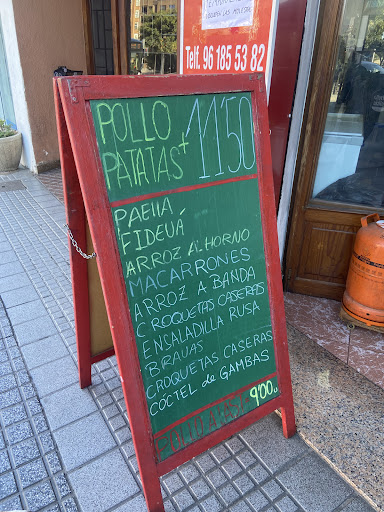 Telf. 96 185 53 82
POLLO + 11'50
PATATAS
PAELLA
FIDEUÁ
ARROZ AL HORNO
MACARRONES
ARROZ A BANDA
CROQUETAS CASERAS
ENSALADILLA RUSA
BRAVAS
CROQUETAS CASERAS
CÓCTEL de GAMBAS
9'00